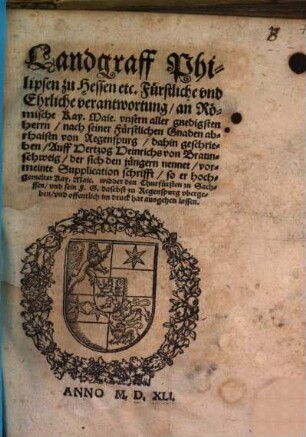 Landgraff Phi-
lipsen zu Hessen etc. Fürstliche vnd
Ehrliche verantwortung / an Rö-
mische Kay. Maie. vnsern aller gnedigsten
Herrn / nach seiner Fürstlichen Gnaden ab-
rhaisen von Regenspurg / dahin geschrie-
ben / Auff Hertzog Heinrichs von Braun-
schweig / der sich den jüngern nennet / vor-
meinte Supplication schrifft / so er hoch-
gemelter Kay. Maie. widder den Churfürsten zu Sach-
ssen / vnd sein F. G. daselbst zu Regenspurg vberge-
ben / vnd offentlich im druck hat ausgehen lassen.
ANNO M. D. XLI.